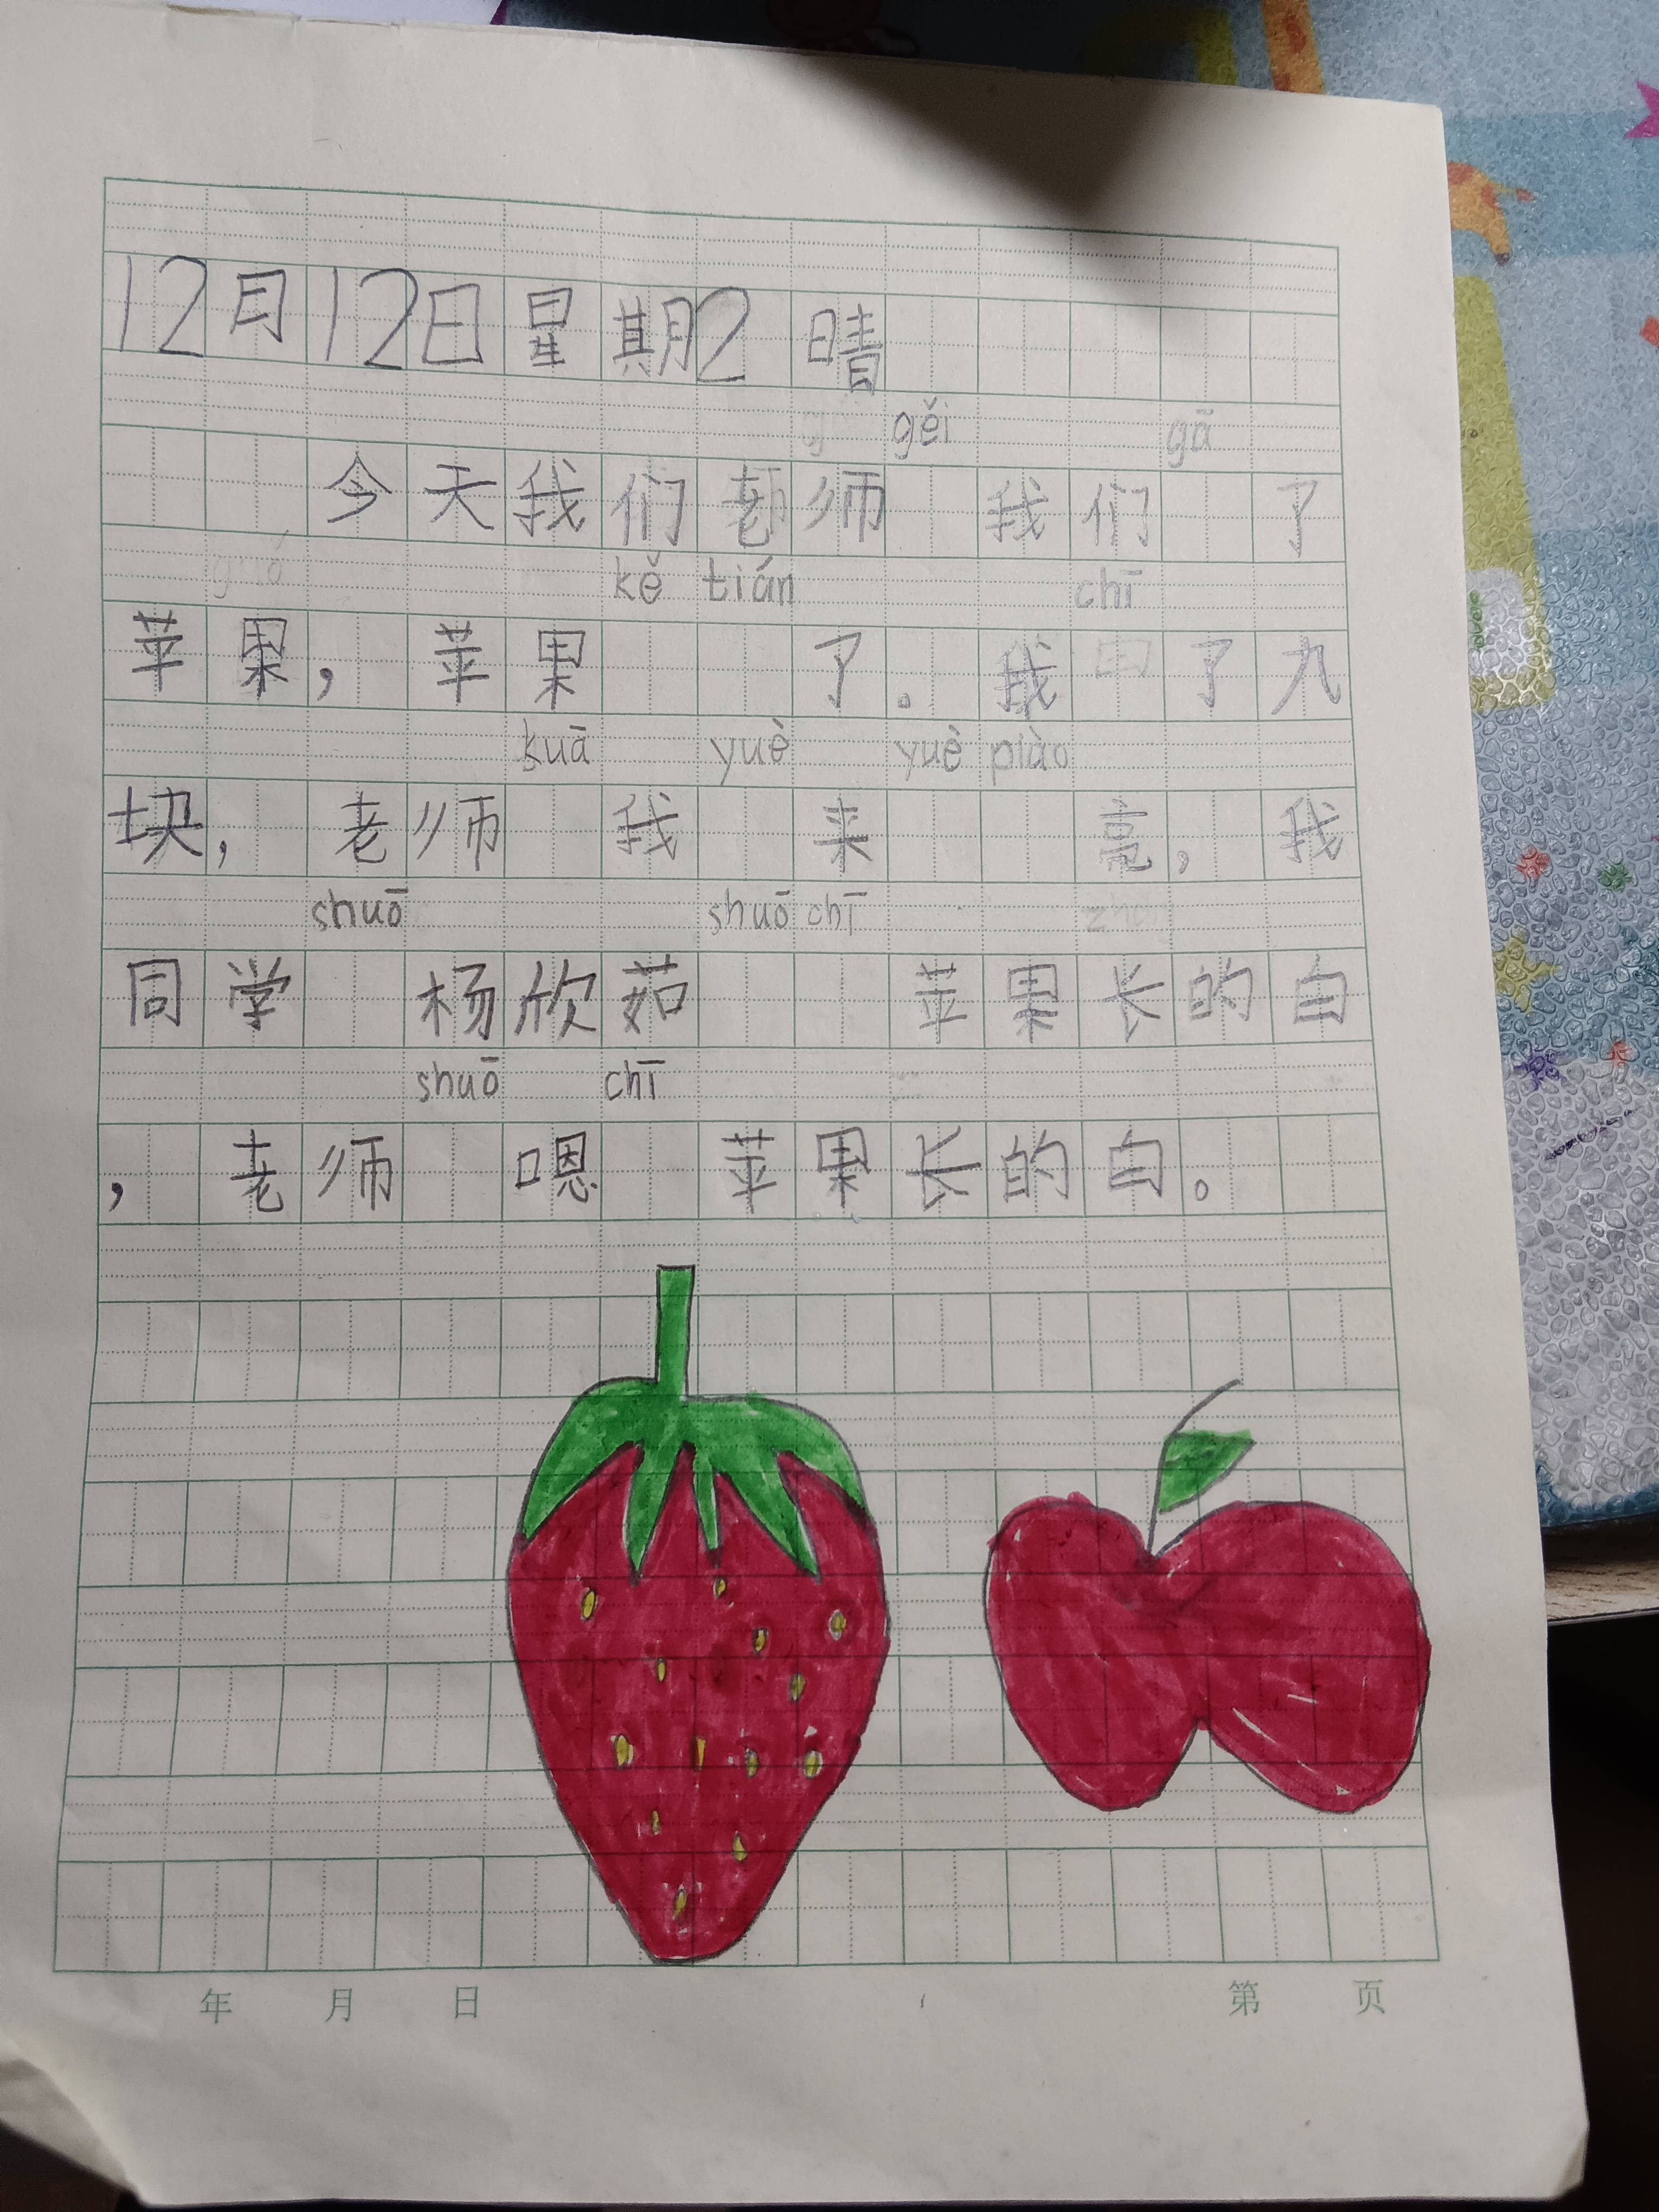 12月12日星期2 晴
gěi gā
今天我们老师 我们 了
kě tián chī
苹果，苹果 了。我 了九
kuā yuè yuè piào
块，老师 我 来 亮，我
shuō shuō chī
同学 杨欣茹 苹果长的白
shuō chī
，老师 嗯 苹果长的白。
年 月 日 第 页